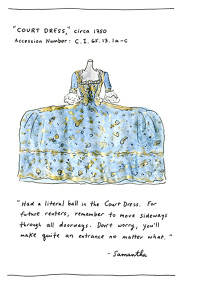 "COURT DRESS," circa 1750
Accession Number: C.I. 65.13.1a-c
"Had a literal ball in the Court Dress. For
future renters, remember to move sideways
through all doorways. Don't worry, you'll
make quite an entrance no matter what."
- Samantha